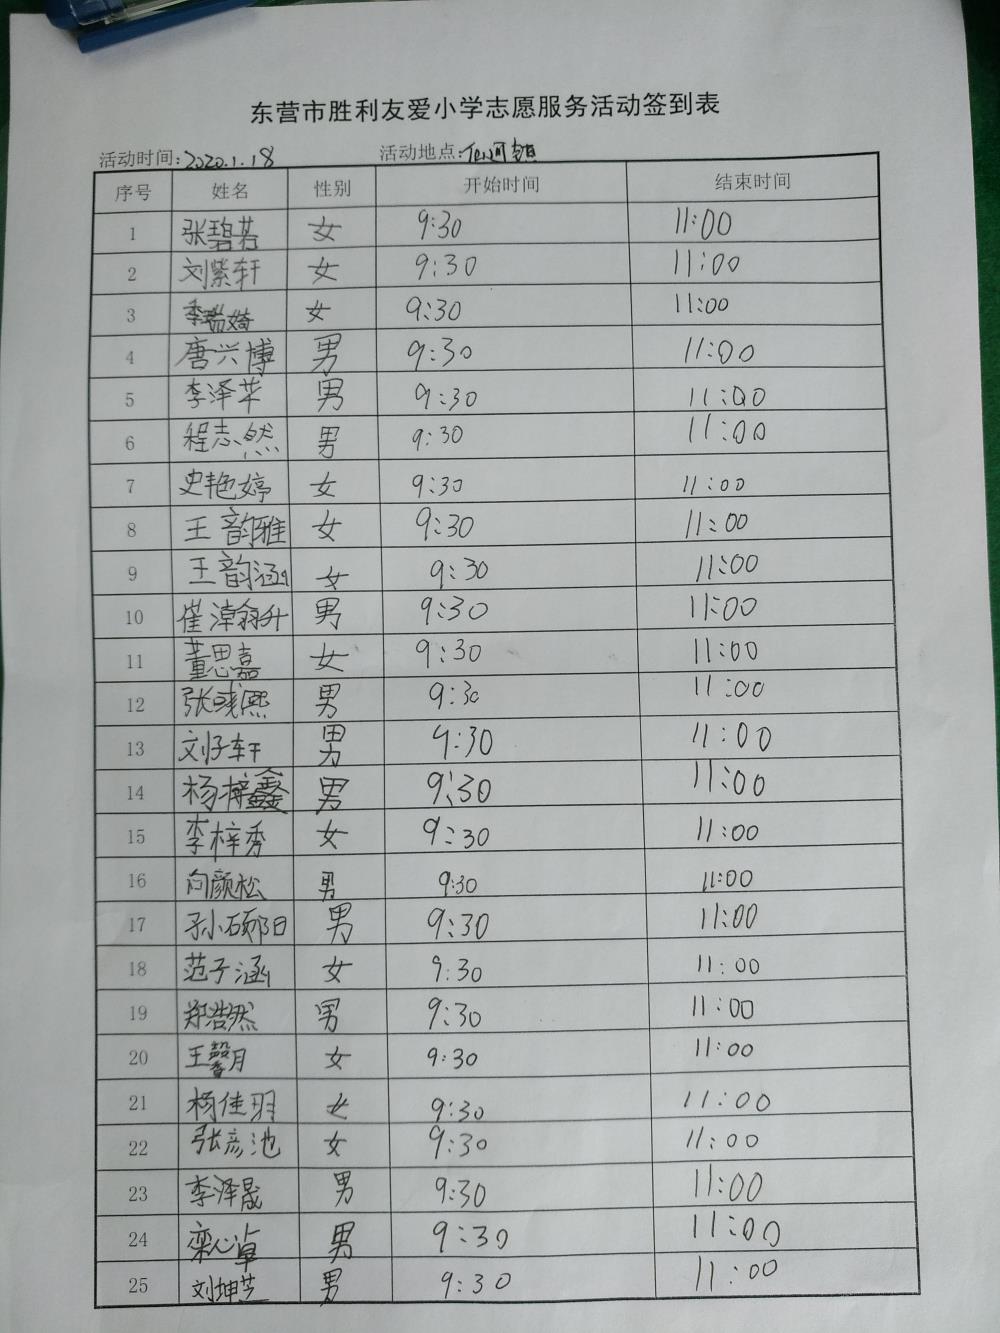 东营市胜利友爱小学志愿服务活动签到表
活动时间:2020.1.18 活动地点:
序号 姓名 性别 开始时间 结束时间
1 张碧若 女 9:30 11:00
2 刘紫轩 女 9:30 11:00
3 李瑞婍 女 9:30 11:00
4 唐兴博 男 9:30 11:00
5 李泽 男 9:30 11:00
6 程志然 男 9:30 11:00
7 史艳婷 女 9:30 11:00
8 王韵雅 女 9:30 11:00
9 王韵涵 女 9:30 11:00
10 男 9:30 11:00
11 董思嘉 女 9:30 11:00
12 张 熙 男 9:30 11:00
13 刘子轩 男 9:30 11:00
14 杨梓鑫 男 9:30 11:00
15 李梓秀 女 9:30 11:00
16 向颜松 男 9:30 11:00
17 孙硕阳 男 9:30 11:00
18 范子涵 女 9:30 11:00
19 郑浩然 男 9:30 11:00
20 王馨月 女 9:30 11:00
21 杨佳羽 女 9:30 11:00
22 张彦池 女 9:30 11:00
23 李泽晟 男 9:30 11:00
24 栾心卓 男 9:30 11:00
25 刘坤芝 男 9:30 11:00